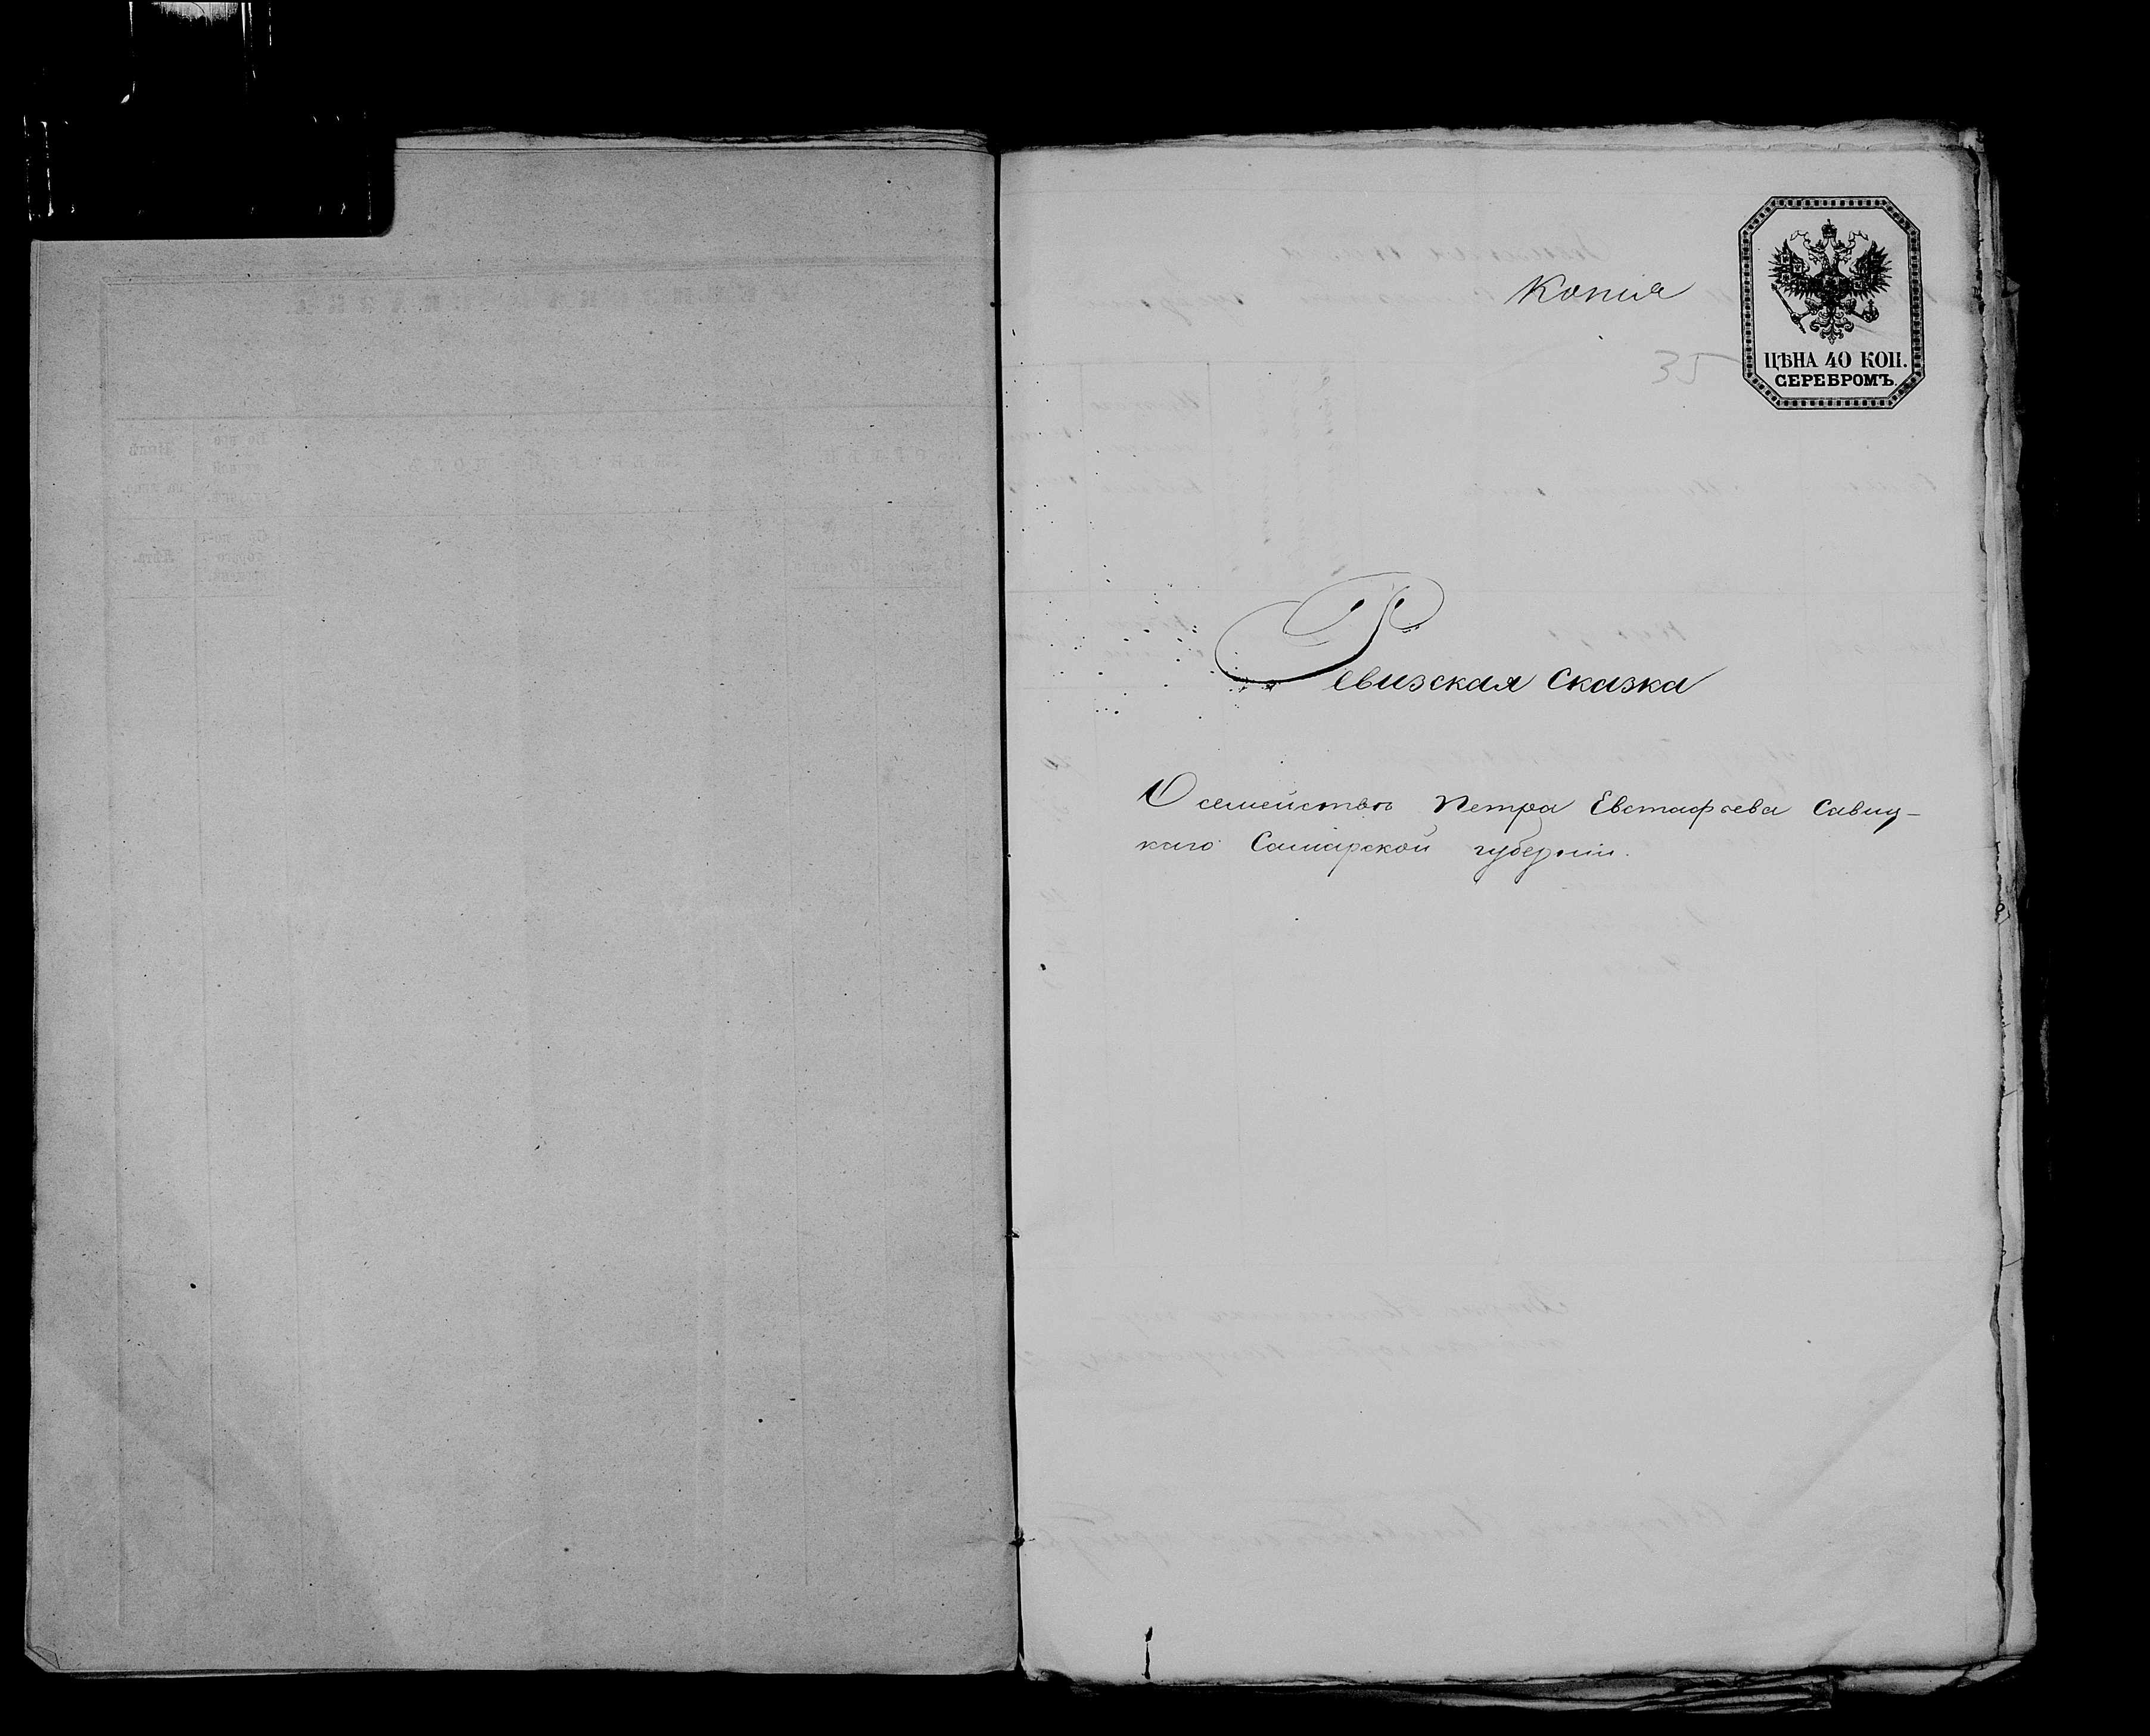 Копія
35
ЦѢНА 40 КОП.
СЕРЕБРОМЪ.
Ревизская сказка
О семействѣ Петра Евстафьева Савиц-
каго Самарской губерніи.